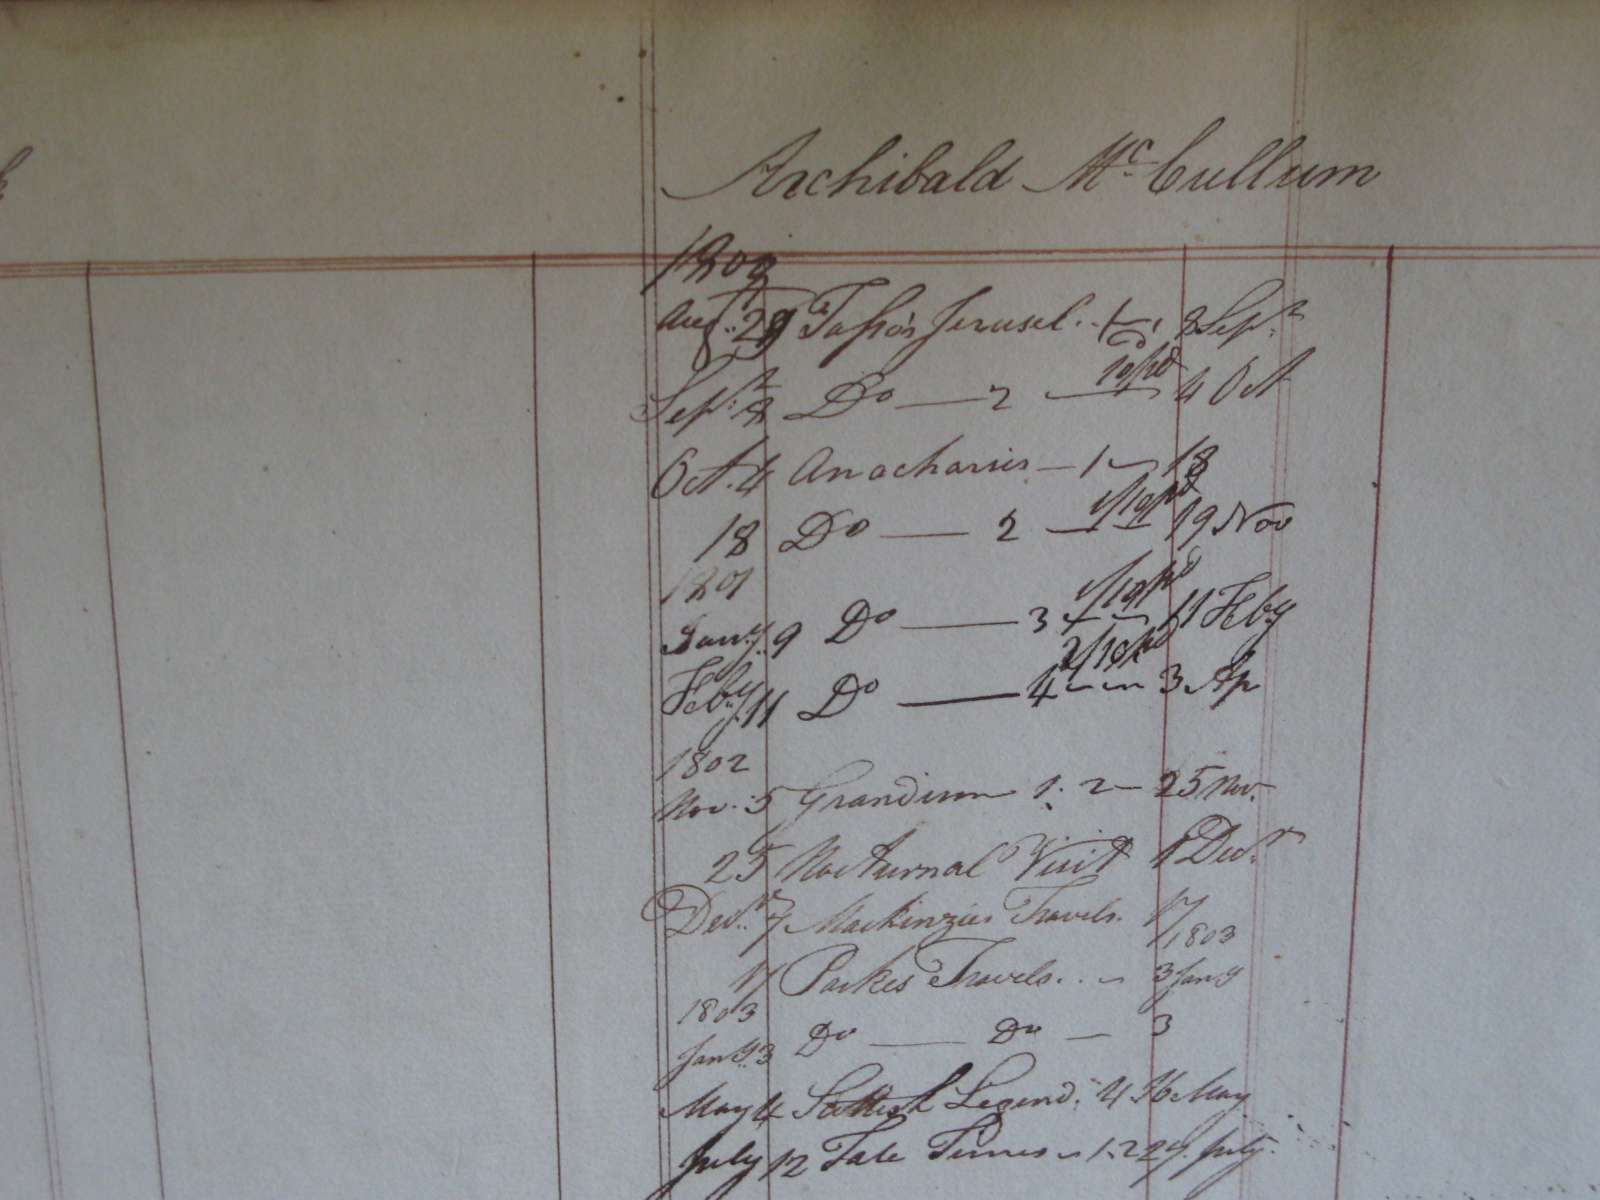 Archibald McCullum
1800
Augt. 29 Tasso's Jerusel. 1 8 Sepr
Sepr 8 Do — 2 — 10/pd 4 Oct
Oct. 4 Anacharsis — 1 — 18
18 Do — 2 — 1/10/pd 19 Nov
1801
Jany. 9 Do — 3 1/10/pd 11 Feby
Feby. 11 Do — 4 — 2/10/pd 3 Ap
1802
Nov. 5 Grandison 1. 2 — 25 Nov.
25 Nocturnal Visit 1 Decr
Decr. 7 Mackinzies Travels. 17
17 Parkes Travels. . — 1803 3 Jany
1803
Jany. 3 Do — Do — 3
May 4 Scottish Legend. 4 16 May
July 12 Tale Times — 1. 2 29 July